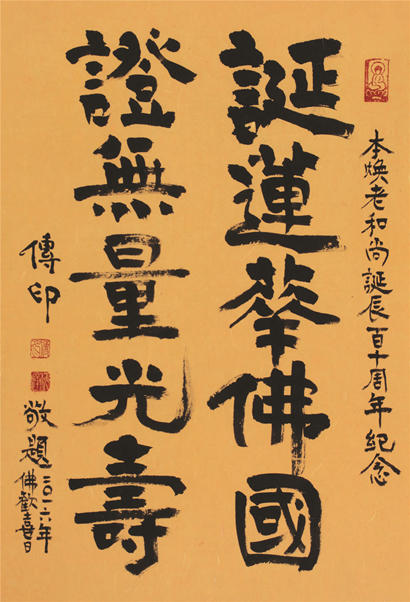 本焕老和尚誕辰百十周年紀念
誕蓮華佛國
證無量光壽
傳印
敬題二〇一六年
佛歡喜日